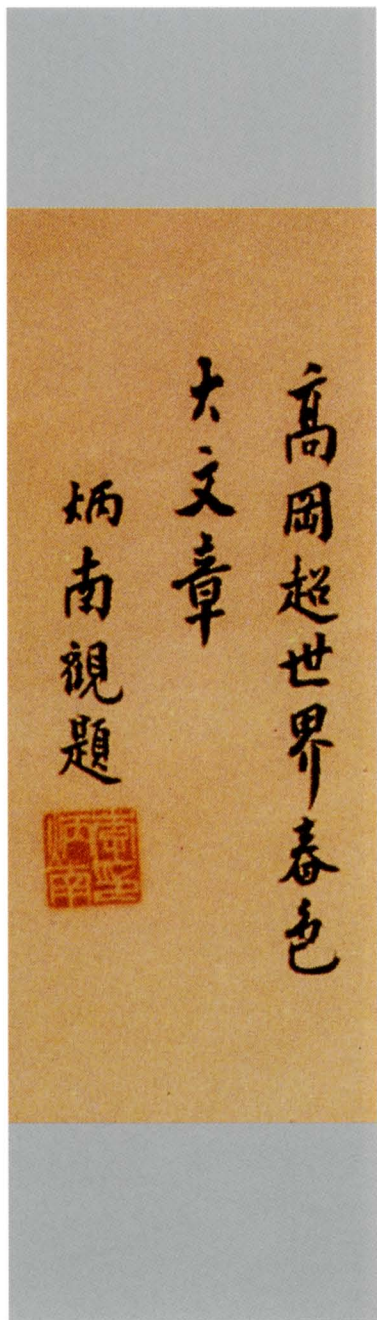 高岡超世界春色
大文章
炳南觀題